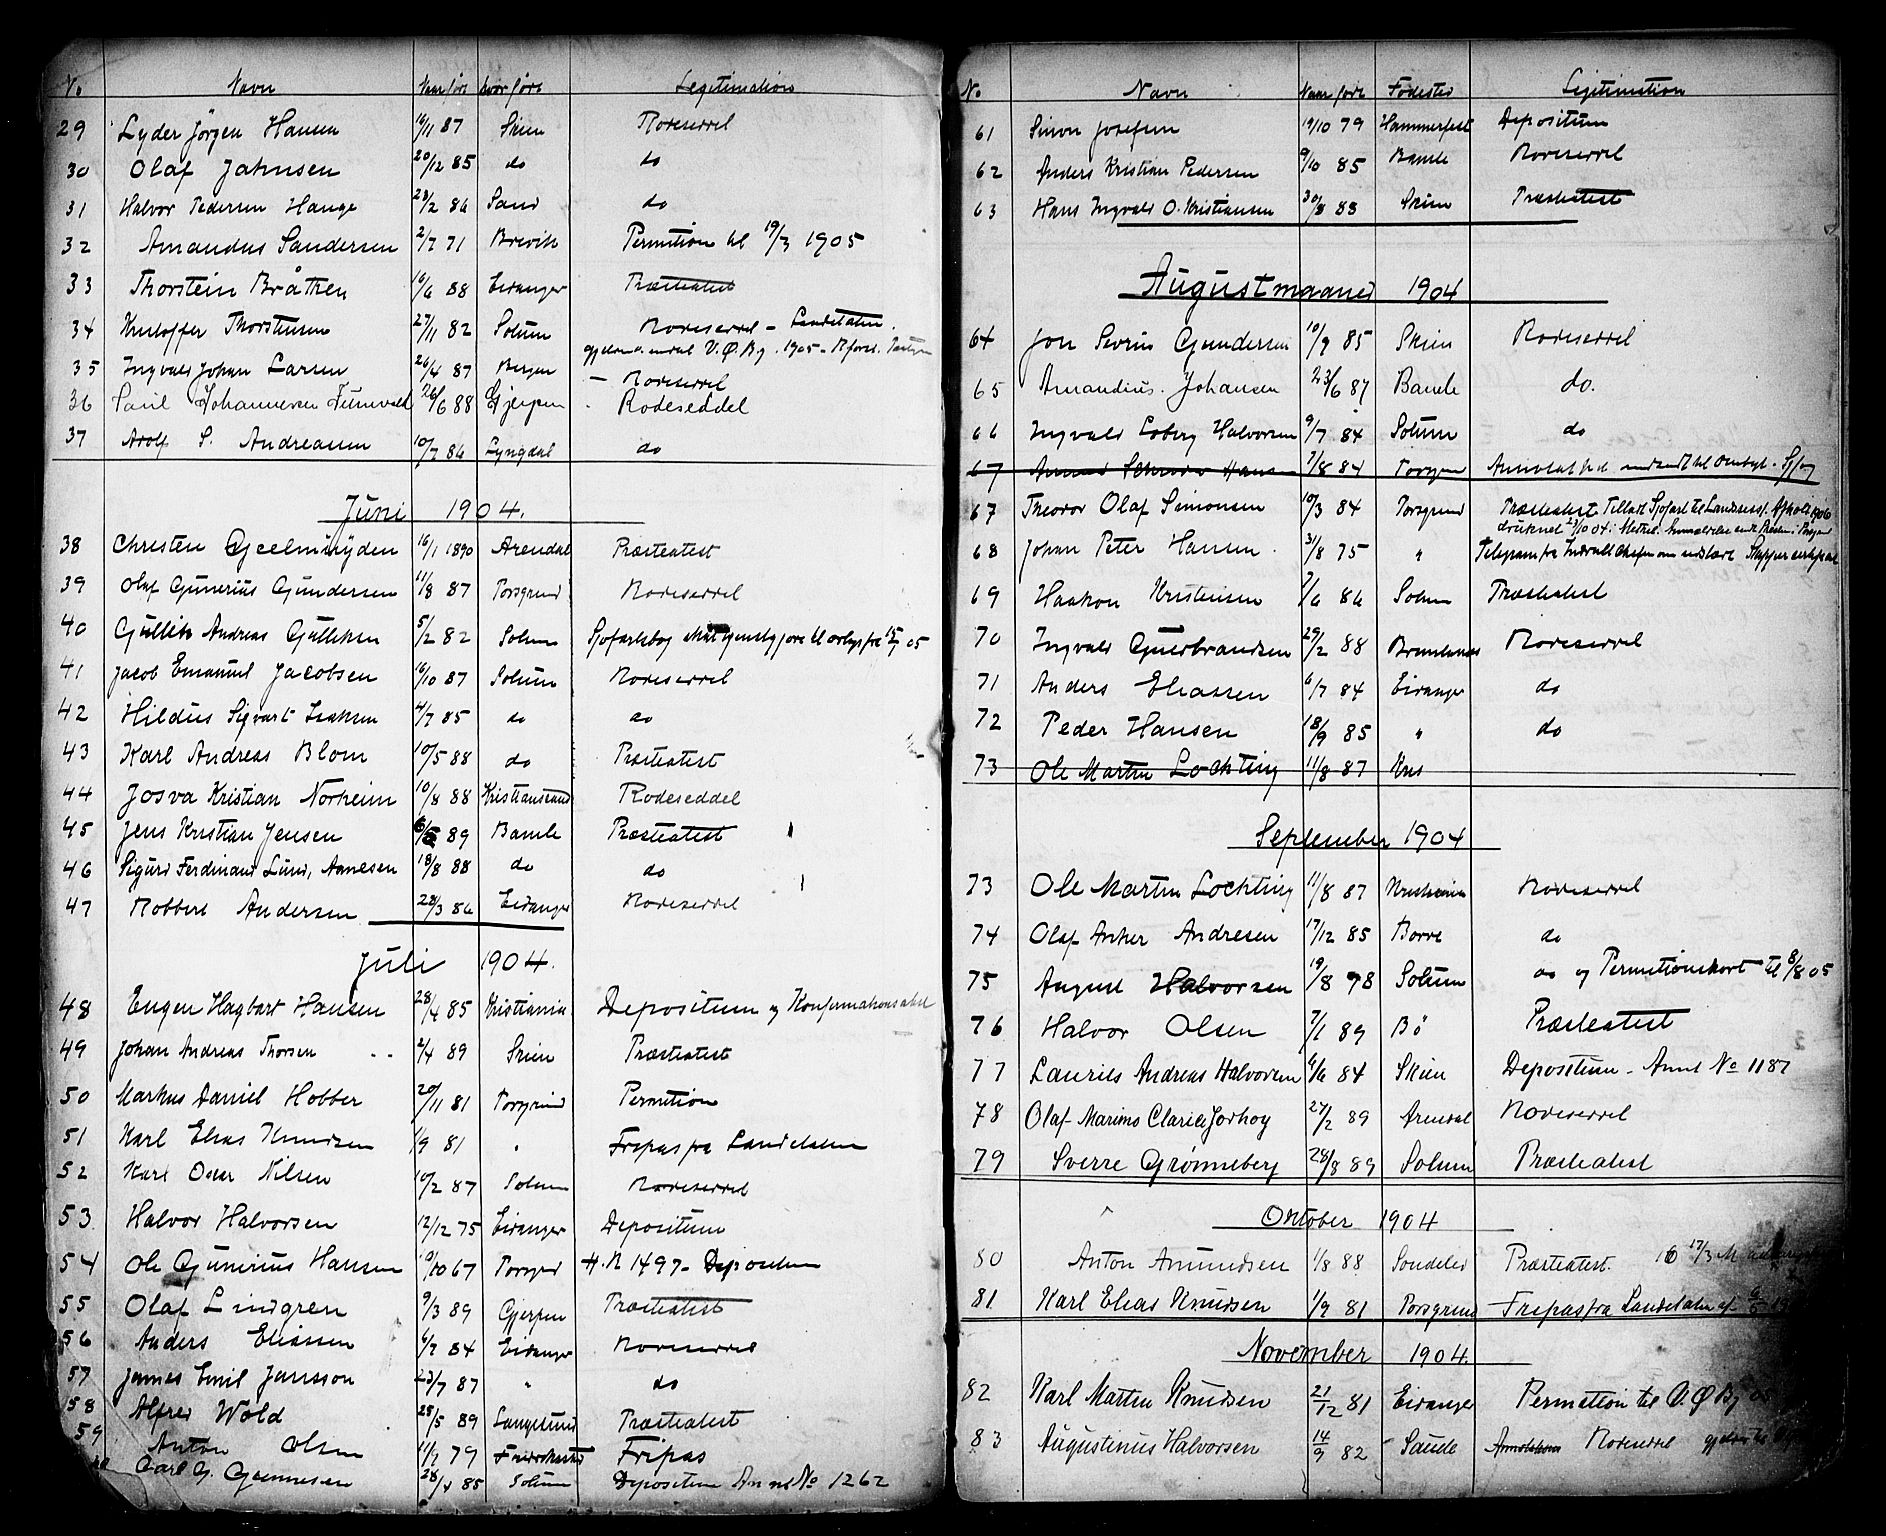 No Navn Naar født hvor født Legitimation
29 Lyder Jörgen Hansen 16/11 87 Skien Rodeseddel
30 Olaf Jahnsen 20/12 85 do do
31 Halvor Pedersen Hauge 23/2 86 Sand do
32 Amandus Sandersen 2/7 71 Brevik Permition til 19/3 1905
33 Thorstein Bråthen 16/6 88 Eidanger Præsteatest
34 Kristoffer Thorstensen 27/11 82 Solum Rodeseddel - Landetaten
V.Ø.By. 1905
35 Ingvald Johan Larsen 26/4 87 Bergen - Rodeseddel
36 Paul Johannesen 26/6 88 Gjerpen - Rodeseddel
37 Adolf S. Andreassen 10/7 86 Lyngdal do
Juni 1904.
38 Christen Gjeelmüyden 16/1 1890 Arendal Præsteatest
39 Olaf Gunerius Gundersen 11/8 87 Porsgrund Rodeseddel
40 Gullik Andreas Gulliksen 5/2 82 Solum Sjøfartsbog 05
41 Jacob Emanuel Jacobsen 16/10 87 Solum Rodeseddel
42 Hildus Sigvart Isaksen 4/7 85 do do
43 Karl Andreas Blom 10/5 88 do Præsteatest
44 Josva Kristian Norheim 10/8 88 Kristianssand Rodeseddel
45 Jens Kristian Jensen 89 Bamle Præsteatest
46 Sigurd Ferdinand Lund, Aanesen 18/8 88 do do
47 Robbert Andersen 23/3 86 Eidanger Rodeseddel
Juli 1904.
48 Eugen Hagbart Hansen 28/4 85 Kristiania Depositum og Konfirmationsatest
49 Johan Andreas Thorsen 2/4 89 Skien Præsteatest
50 Markus Daniel Hobber 20/11 81 Porsgrund Permition
51 Karl Elias Knudsen 1/9 81 " Fripas fra Landetaten
52 Karl Oskar Nilsen 10/2 87 Solum Rodeseddel
53 Halvor Halvorsen 12/12 75 Eidanger Depositum
54 Ole Gunerius Hansen 19/10 67 Porsgrd H.R 1497 - Depositum
55 Olaf Lindgren 9/3 89 Gjerpen Præsteatest
56 Anders Eliassen 6/7 84 Eidanger Rodeseddel
57 James Emil Jansson 23/7 87 " do
58 Alfred Wold 25/5 89 Langesund Præsteatest
59 Anton Olsen 11/2 79 Fredrikstad Fripas
Carl G. Gunnesen 28/4 85 Solum Depositum Annt No 1262
No Navn Naar født Fødested Legitimation
61 Simon Josefsen 19/10 79 Hammerfest Depositum
62 Anders Kristian Pedersen 9/10 85 Bamle Rodeseddel
63 Hans Ingvald O. Kristiansen 30/8 88 Skien Præsteatest
Augustmaaned 1904
64 Jon Severin Gundersen 10/9 85 Skien Rodeseddel
65 Amandius Johansen 23/6 87 Bamle do.
66 Ingvald Soberg Halvorsen 9/7 84 Solum do
67 7/8 84 Porsgrd
67 Theodor Olaf Simonsen 10/3 84 Porsgrund Præsteatest
68 Johan Peter Hansen 31/8 75 " Telegram fra
69 Haakon Kristensen 7/6 86 Solum Præsteatest
70 Ingvald Guldbrandsen 29/2 88 Brunlanes Rodeseddel
71 Anders Eliassen 6/7 84 Eidanger do
72 Peder Hansen 18/9 85 " do
73 Ole Martin Lochting 11/8 87 Kris
September 1904
73 Ole Martin Lochting 11/8 87 Kristiania Rodeseddel
74 Olaf Anker Andresen 17/12 85 Borre do
75 August Halvorsen 19/8 78 Solum do og Permitionskort til 8/8 05
76 Halvor Olsen 7/1 89 Bö Præsteatest
77 Laurits Andreas Halvorsen 6/6 84 Skien Depositum - Annt No 1187
78 Olaf Marinus 27/2 89 Arendal Rodeseddel
79 Sverre Grønneberg 28/8 89 Solum Præsteatest
Oktober 1904
80 Anton Amundsen 1/8 88 Sondeled Præsteatest. 17/3
81 Karl Elias Knudsen 1/9 81 Porsgrund Fripas fra Landetaten af
November 1904.
82 Karl Martin Knudsen 21/12 81 Eidanger Permition til V.Ø.By 05
83 Augustinus Halvorsen 14/9 82 Saude Rodeseddel